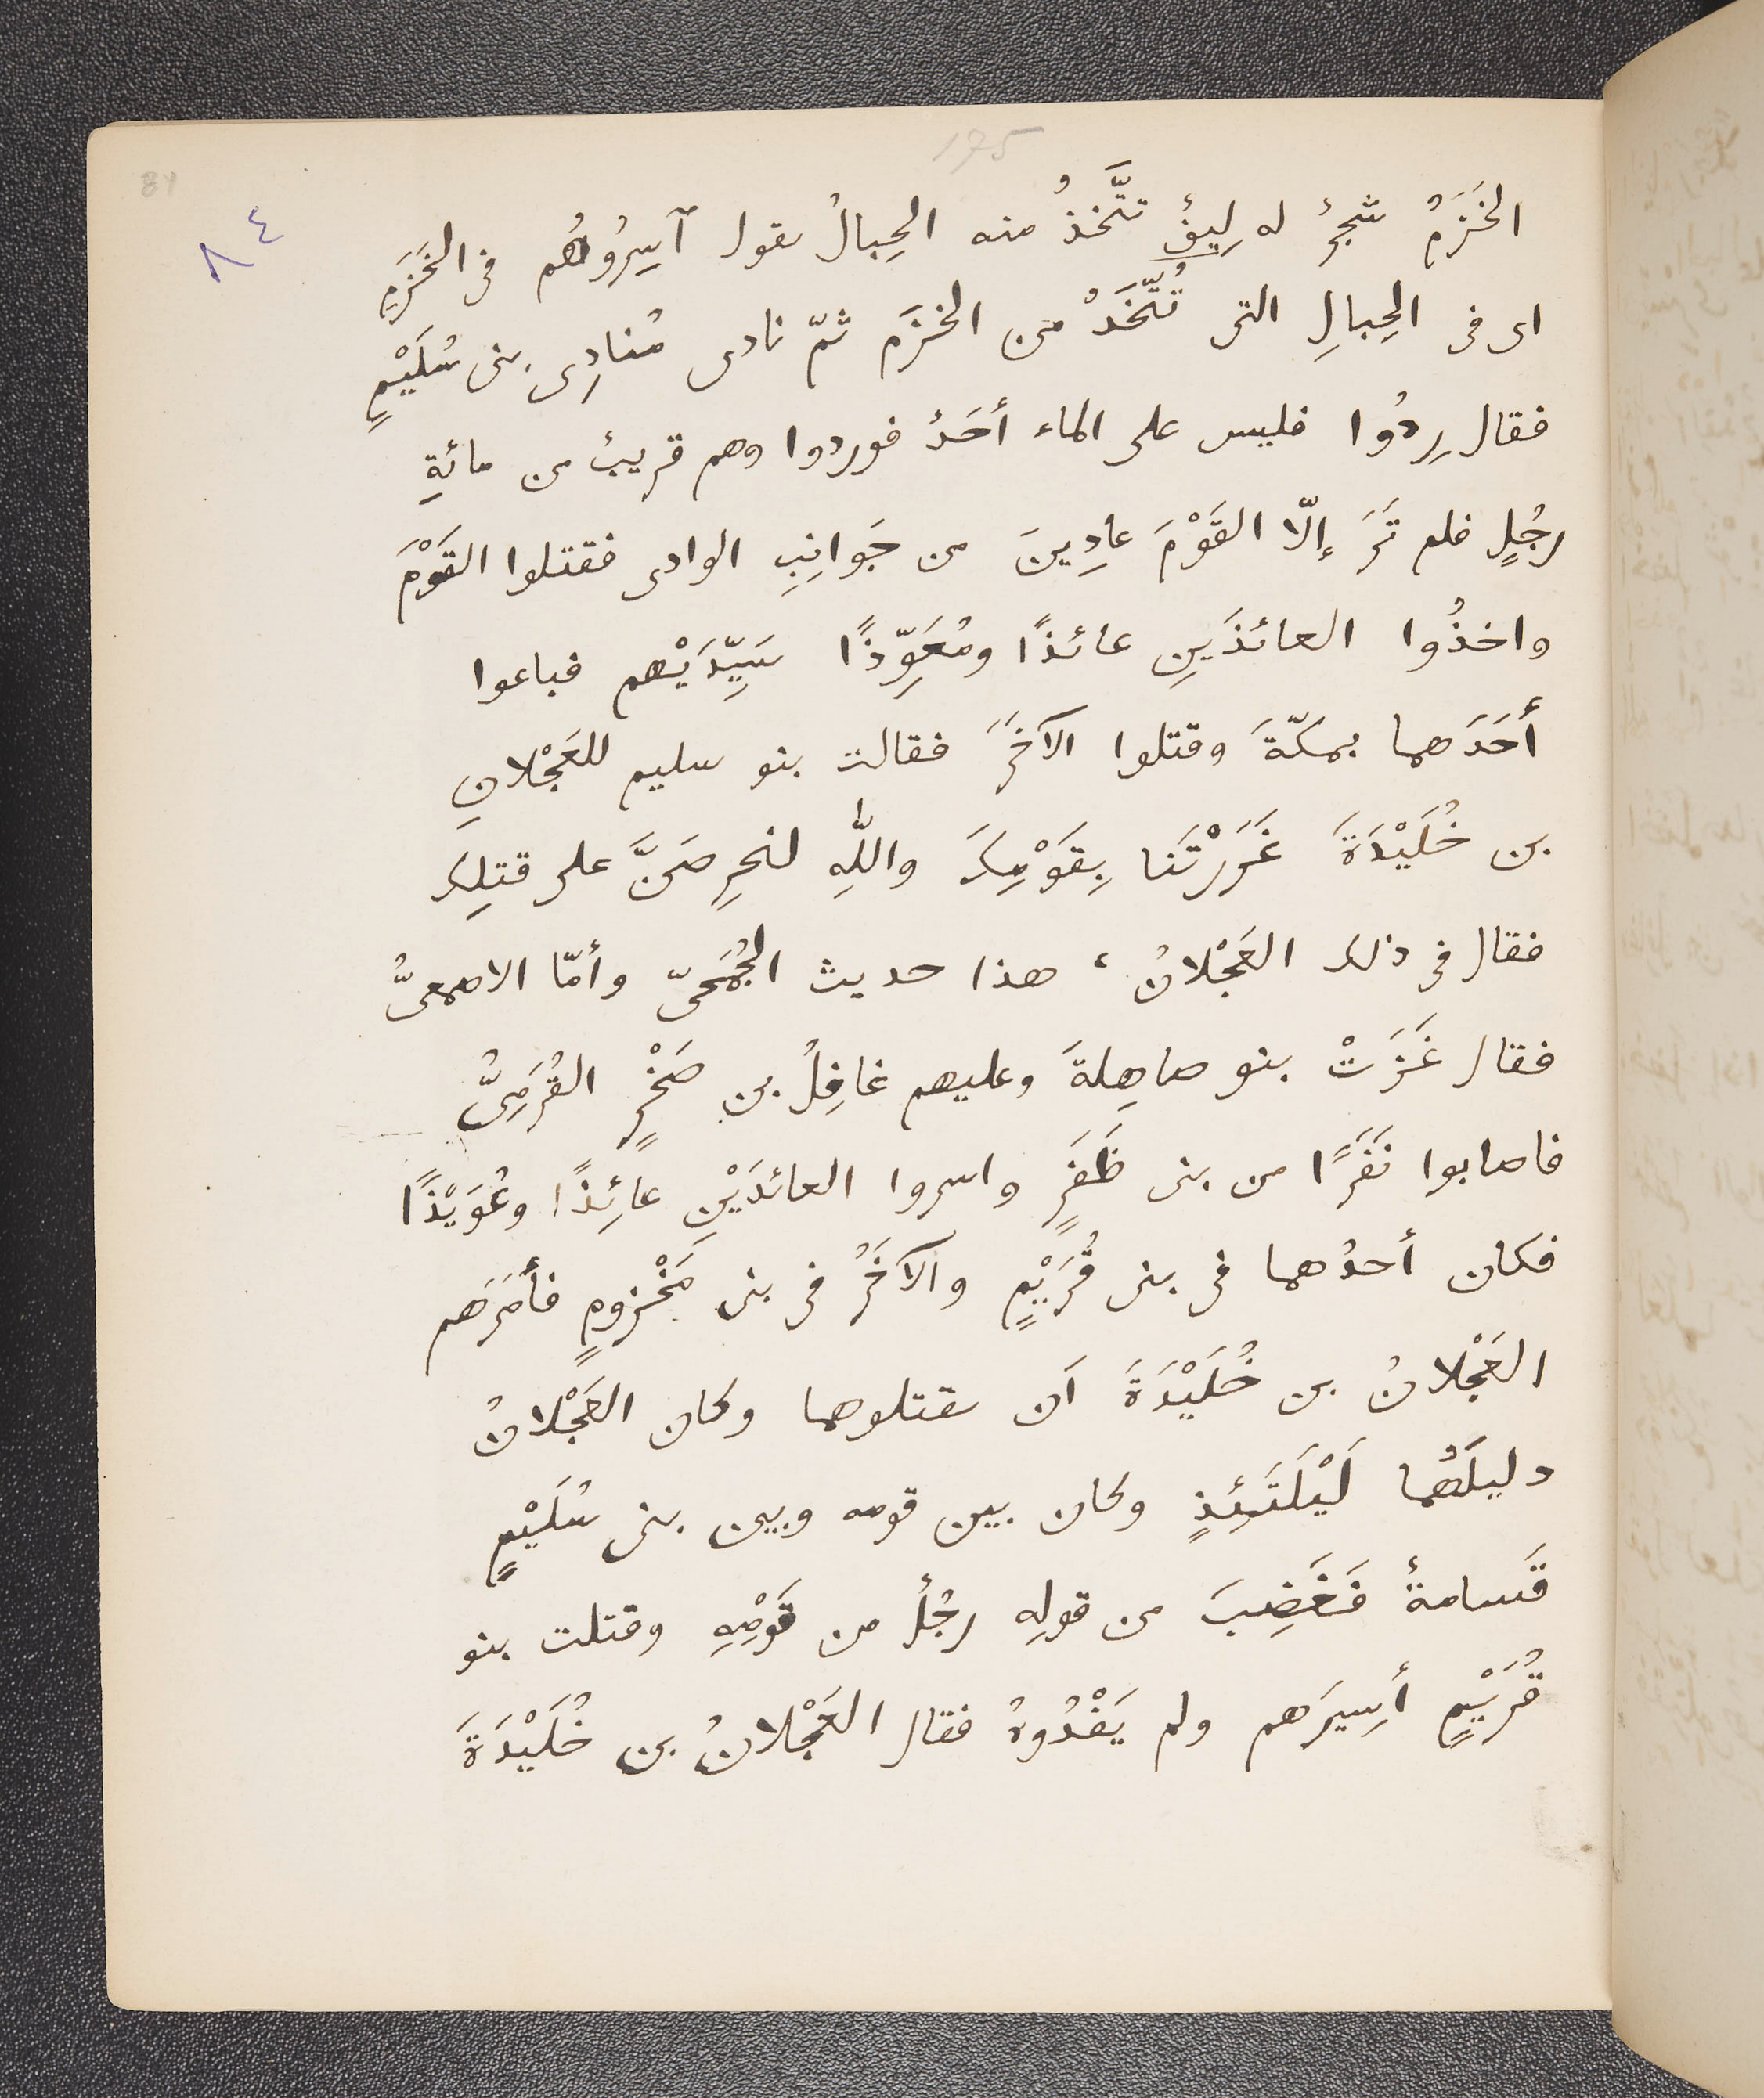 175
84
٨٤
الخَزَمُ شجرٌ له لِيفٌ تتَّخذُ منه الحِبالُ يقول آسِرُوهُم فى الخَزَمِ
اى فى الحِبالِ التى تُتَّخَذُ من الخزَم ثمّ نادى مُنادِى بنى سُلَيْمٍ
فقال رِدُوا فليس على الماء أحَدٌ فوردوا وهم قريبٌ من مائةِ
رجُلٍ فلم تَرَ إلّا القَوْمَ عادِينَ من جَوانِبِ الوادى فقتلوا القَوْمَ
واخذُوا العائذَينِ عائذًا ومُعَوِّذًا سَيِّدَيْهم فباعوا
أحَدَهما بمكّةَ وقتلوا الآخَرَ فقالت بنو سليم للعَجْلانِ
بن خُلَيْدَةَ غَرَرْتَنا بِقَوْمِكَ واللّٰهِ لنحرِصَنَّ على قتلِك
فقال فى ذلك العَجْلانُ ، هذا حديث الجُمَحىّ وأمّا الاصمعىُّ
فقال غَزَتْ بنو صاهِلةَ وعليهم غافِلُ بن صَخْرٍ القُرَمِىُّ
فاصابوا نَفَرًا من بنى ظَفَرٍ واسروا العائذَيْنِ عائِذًا وعُوَيْذًا
فكان أحدُهما فى بنى قُرَيْمٍ والآخَرُ فى بنى مَخْزومٍ فأمَرَهم
العَجْلانُ بن خُلَيْدَةَ اَن يقتلوهما وكان العَجْلانُ
دليلَهُما لَيْلَتَئِذٍ وكان بين قومه وبين بنى سُلَيْمٍ
قَسامةٌ فَغَضِبَ من قولِه رجُلٌ من قَوْمِهِ وقتلت بنو
قُرَيْمٍ أسِيرَهم ولم يَفْدُوهُ فقال العَجْلانُ بن خُلَيْدَةَ